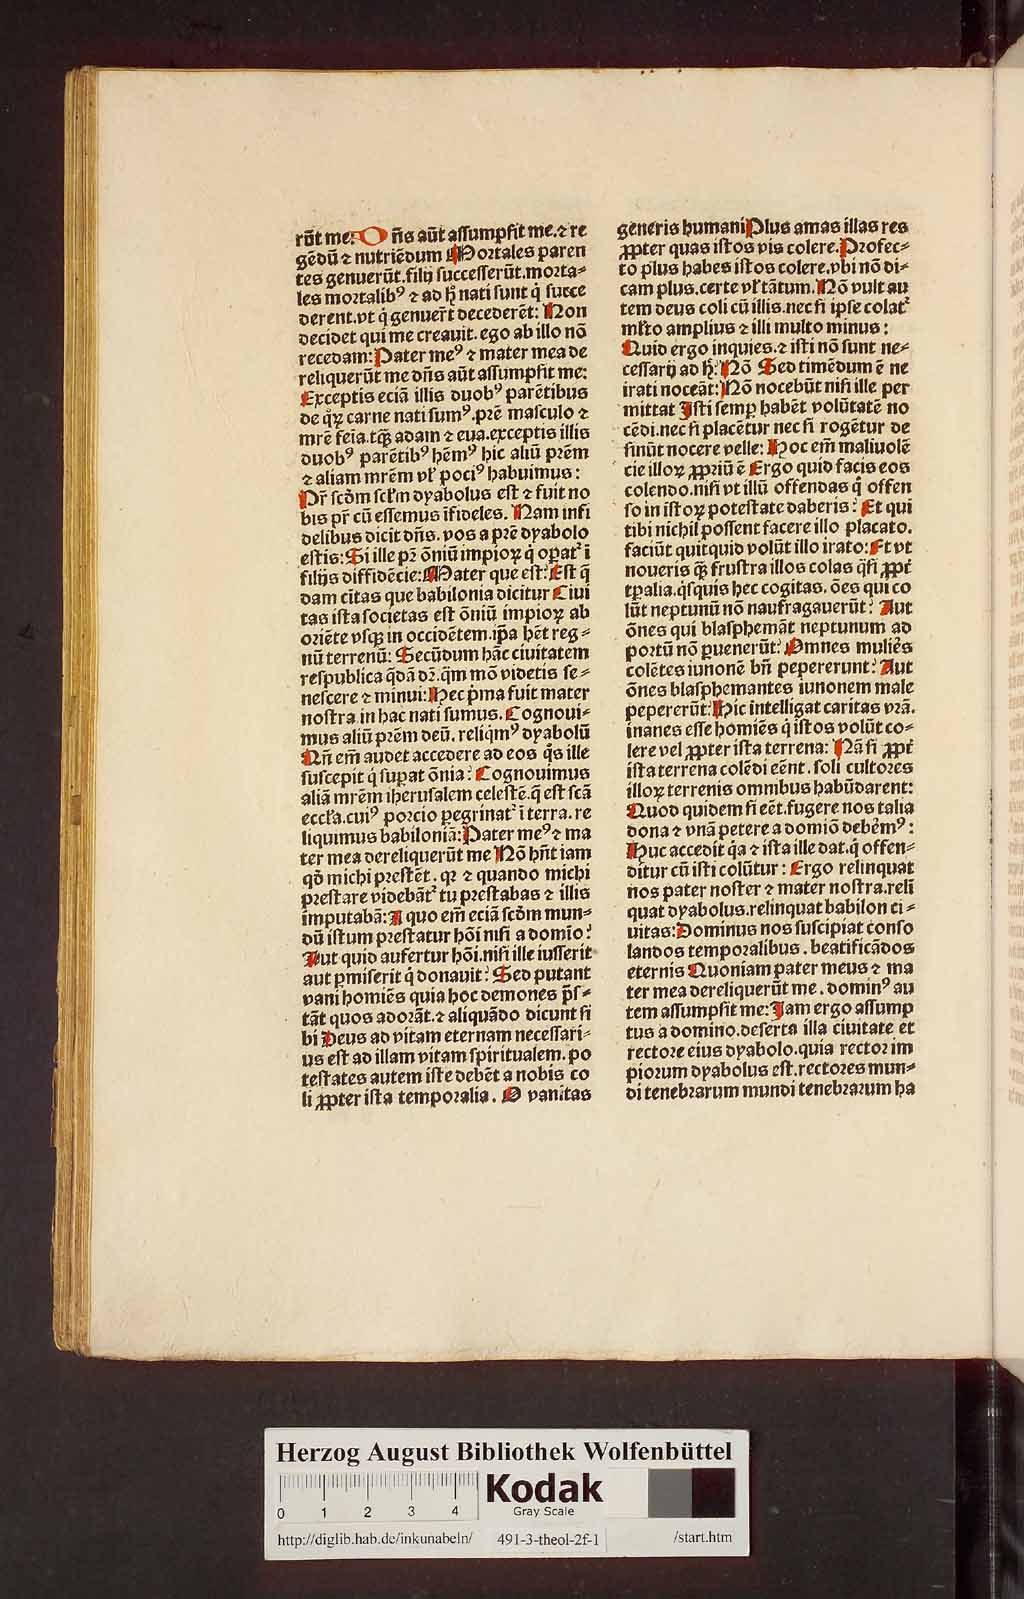 rūt me: Dn̄s aūt assumpsit me.⁊ re
gēdū ⁊ nutriēdum Mortales paren
tes genuerūt.filij successerūt.morta⸗
les mortalibꝰ ⁊ ad h̨ nati sunt q̇ succe
derent.vt q̇ genuer̄t decederēt: Non
decidet qui me creauit. ego ab illo nō
recedam: Pater meꝰ ⁊ mater mea de
reliquerūt me dn̄s aūt assumpsit me:
Exceptis eciā illis duobꝰ parētibus
de q̇ꝝ carne nati sumꝰ.prē masculo ⁊
mrē feīa.tqꝫ adam ⁊ eua.exceptis illis
duobꝰ parētibꝰ hēmꝰ hic aliū prēm
⁊ aliam mrēm vl̄ pociꝰ habuimus:
Pr̄ scd̄m scl̄m dyabolus est ⁊ fuit no
bis pr̄ cū essemus īfideles. Nam infi
delibus dicit dn̄s. vos a prē dyabolo
estis: Si ille pr̄ ōniū impioꝝ q̇ oꝑatᷣ ī
filijs diffidēcie: Mater que est: Est q̄
dam citas que babilonia dicitur Ciui
tas ista societas est ōniū impioꝝ ab
oriēte vsqꝫ in occidētem.ip̄a hēt reg⸗
nū terrenū: Secūdum hāc ciuitatem
respublica q̄dā dr̄.q̄m mō videtis se⸗
nescere ⁊ minui: Hec p̄ma fuit mater
nostra in hac nati sumus. Cognoui⸗
mus aliū prēm deū. reliqm̄ꝰ dyabolū
Qn̄ em̄ audet accedere ad eos q̇s ille
suscepit q̇ suꝑat ōnia: Cognouimus
aliā mrēm iherusalem celestē.q̄ est scā
eccl̄a.cuiꝰ porcio ꝑegrinatᷣ ī terra. re
liquimus babiloniā: Pater meꝰ ⁊ ma
ter mea dereliquerūt me Nō hn̄t iam
qd̄ michi prestēt. qꝛ ⁊ quando michi
prestare videbātᷣ tu prestabas ⁊ illis
imputabā: A quo em̄ eciā scd̄m mun⸗
dū istum prestatur hōi nisi a domīo:
Aut quid aufertur hōi.nisi ille iusserit
aut ꝑmiserit q̇ donauit: Sed putant
vani homiēs quia hoc demones p̄s⸗
tāt quos adorāt.⁊ aliquādo dicunt si
bi Deus ad vitam eternam necessari⸗
us est ad illam vitam spiritualem. po
testates autem iste debēt a nobis co
li ꝓpter ista temporalia. O vanitas
generis humani Plus amas illas res
ꝓpter quas istos vis colere. Profec⸗
to plus habes istos colere.vbi nō di⸗
cam plus.certe vl̄ tātum. Nō vult au
tem deus coli cū illis.nec si ipse colatᷣ
ml̄to amplius ⁊ illi multo minus:
Quid ergo inquies.⁊ isti nō sunt ne⸗
cessarij ad h̨: Nō Sed timēdum ē ne
irati noceāt: Nō nocebūt nisi ille per
mittat Isti semꝑ habēt volūtatē no
cēdi.nec si placētur nec si rogētur de
sinūt nocere velle: Hoc em̄ maliuolē
cie illoꝝ ꝓpriū ē Ergo quid facis eos
colendo.nisi vt illū offendas q̇ offen
so in istoꝝ potestate daberis: Et qui
tibi nichil possent facere illo placato.
faciūt quitquid volūt illo irato: Et vt
noueris qꝫ frustra illos colas q̄si ꝓpt̄
tp̄alia.q̇squis hec cogitas. ōes qui co
lūt neptunū nō naufragauerūt: Aut
ōnes qui blasphemāt neptunum ad
portū nō ꝑuenerūt: Omnes mulier̄s
colētes iunonē bn̄ pepererunt: Aut
ōnes blasphemantes iunonem male
pepererūt: Hic intelligat caritas vrā.
inanes esse homiēs q̇ istos volūt co⸗
lere vel ꝓpter ista terrena: Nā si ꝓpt̄
ista terrena colēdi eēnt. soli cultores
illoꝝ terrenis omnibus habūdarent:
Quod quidem si eēt.fugere nos talia
dona ⁊ vnā petere a domiō debēmꝰ:
Huc accedit q̇a ⁊ ista ille dat.q̇ offen⸗
ditur cū isti colūtur: Ergo relinquat
nos pater noster ⁊ mater nostra.reli
quat dyabolus.relinquat babilon ci⸗
uitas: Dominus nos suscipiat conso
landos temporalibus. beatificādos
eternis Quoniam pater meus ⁊ ma
ter mea dereliquerūt me. dominꝰ au
tem assumpsit me: Iam ergo assump
tus a domino.deserta illa ciuitate et
rectore eius dyabolo.quia rector im
piorum dyabolus est.rectores mun⸗
di tenebrarum mundi tenebrarum ha
Herzog August Bibliothek Wolfenbüttel
0 1 2 3 4
Kodak
Gray Scale
http://diglib.hab.de/inkunabeln/ 491-3-theol-2f-1 /start.htm